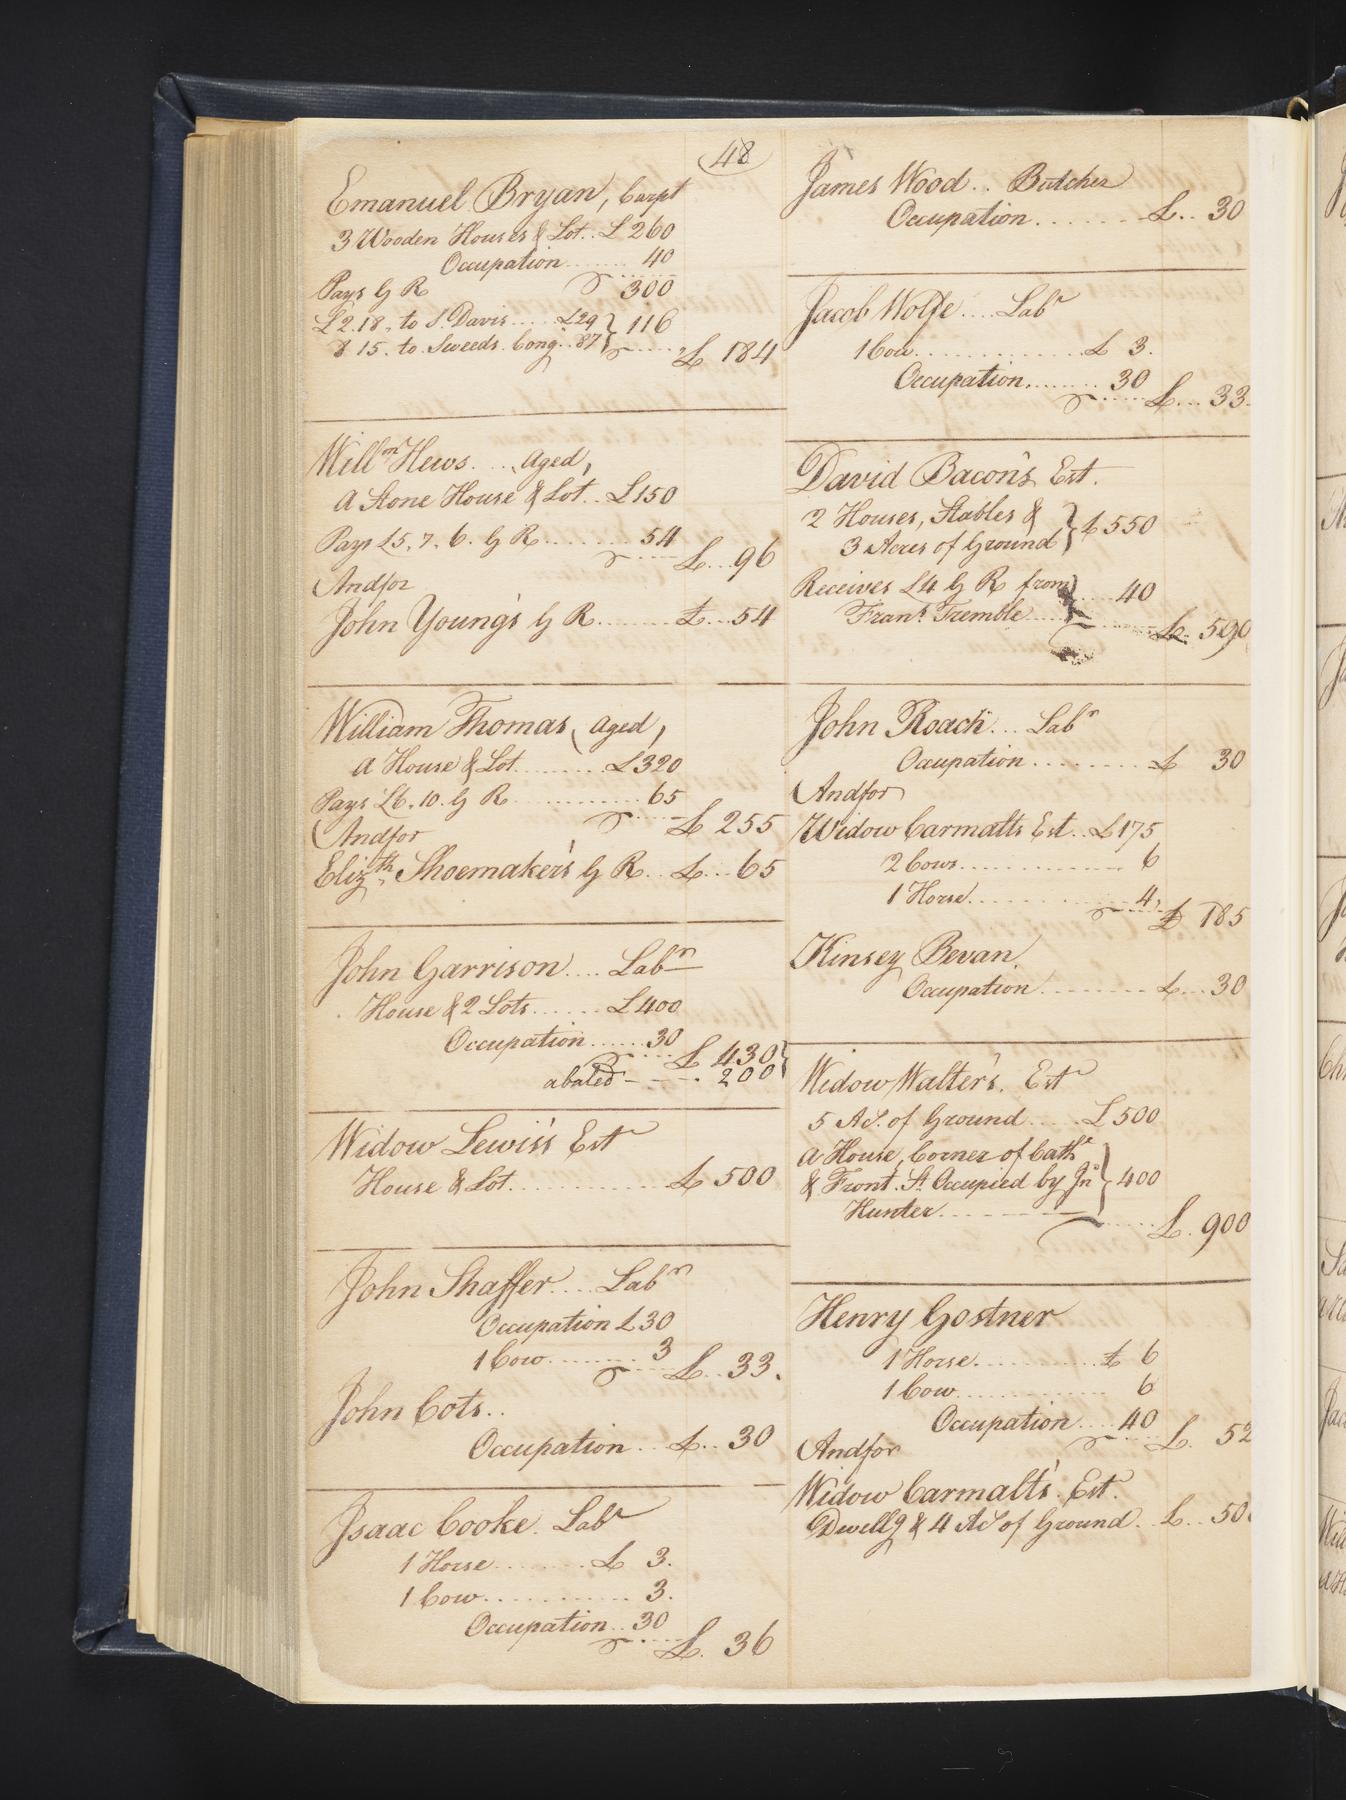 48
Emanuel Bryan, Carpt
3 Wooden Houses & Lot.. £ 260
Occupation........ 40
Pays G R 300
£2.18. to S. Davis.... £29 } 116
8 15. to Sweeds Cong. 87 } £ 184
Willm Hews.... Aged,
A Stone House & Lot.. £150
Pays £5. 7. 6. G R......... 54
£... 96
And for
John Young's G R........ £... 54
William Thomas, Aged,
A House & Lot......... £320
Pays £6. 10. G R............ 65
£ 255
And for
Elizth Shoemaker's G R.. £... 65
John Garrison.... Labr
House & 2 Lots...... £400
Occupation...... 30
£ 430
abated - - - . 200
Widow Lewis's Est
House & Lot............. £ 500
John Shaffer.... Labr
Occupation £30
1 Cow......... 3
£.. 33.
John Cots..
Occupation... £.. 30
Isaac Cooke. Labr
1 Horse......... £ 3.
1 Cow............. 3.
Occupation.. 30
£. 36
James Wood.. Butcher
Occupation........ £.. 30
Jacob Wolfe.... Labr
1 Cow............... £ 3.
Occupation......... 30
£... 33.
David Bacon's Est.
2 Houses, Stables & } £550
3 Acres of Ground
Receives £4 G R from } .... 40
Frans Tremble....
£. 590
John Roach... Labr
Ocupation......... £ 30
And for
Widow Carmalts Est.. £175
2 Cows.............. 6
1 Horse............. 4,
£ 185
Kinsey Bevan
Occupation......... £... 30
Widow Walter's. Est
5 As. of Ground.... £500
A House, Corner of Cathe
& Front. St. Occupied by Jno } 400
Hunter.........
£. 900
Henry Gostner
1 Horse........... £ 6
1 Cow............. 6
Occupation.... 40
£. 52
And for
Widow Carmalt's. Est.
Dwellg & 4 As of Ground. £.. 50